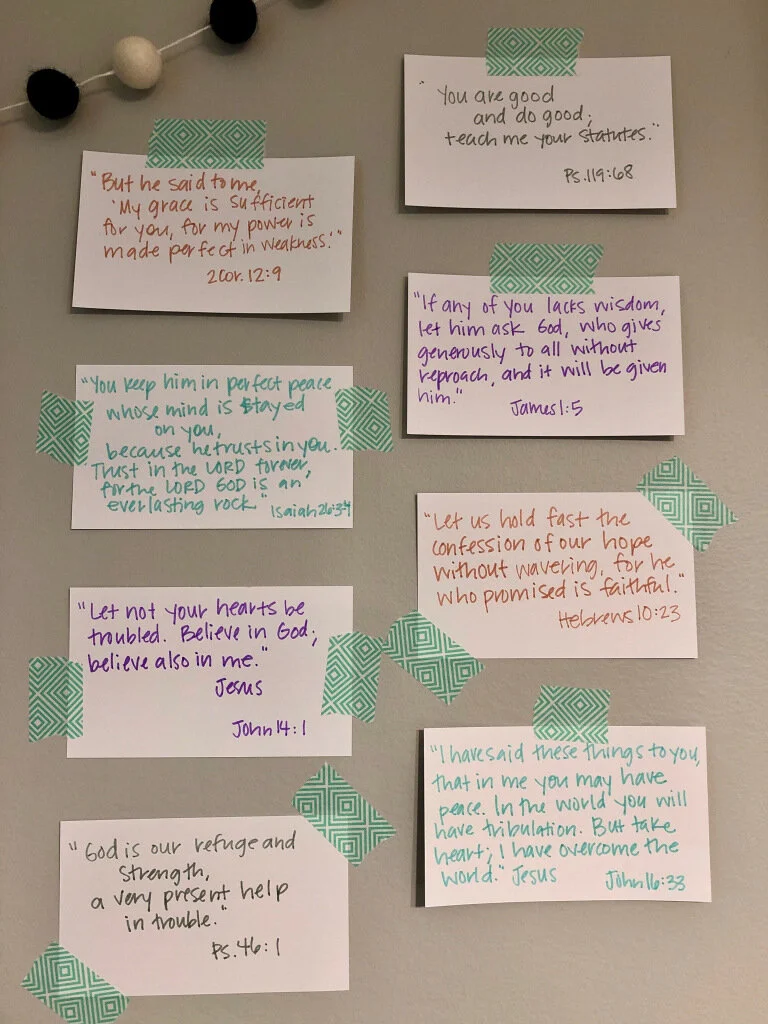 "You are good
and do good;
teach me your statutes."
Ps.119:68
"But he said to me,
'My grace is sufficient
for you, for my power is
made perfect in weakness.'"
2Cor. 12:9
"If any of you lacks wisdom,
let him ask God, who gives
generously to all without
reproach, and it will be given
him."
James 1:5
"You keep him in perfect peace
whose mind is stayed
on you,
because he trusts in you.
Trust in the LORD forever,
for the LORD GOD is an
everlasting rock."
Isaiah 26:3-4
"Let us hold fast the
confession of our hope
without wavering, for he
who promised is faithful."
Hebrews 10:23
"Let not your hearts be
troubled. Believe in God;
believe also in me."
Jesus
John 14:1
"I have said these things to you,
that in me you may have
peace. In the world you will
have tribulation. But take
heart; I have overcome the
world." Jesus
John 16:33
"God is our refuge and
strength,
a very present help
in trouble."
Ps.46:1